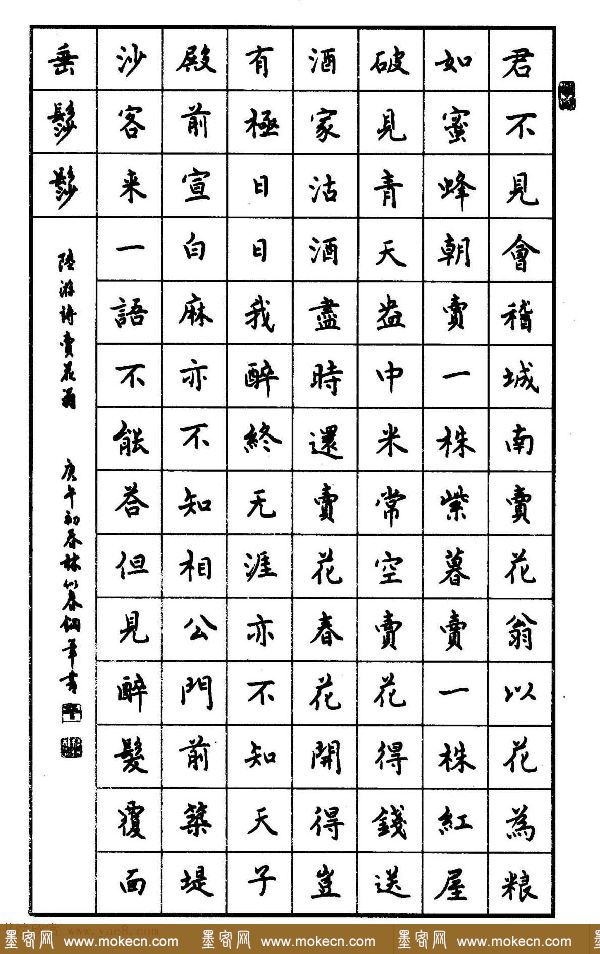 君不見會稽城南賣花翁以花為粮
如蜜蜂朝賣一株紫暮賣一株紅屋
破見青天盎中米常空賣花得錢送
酒家沽酒盡時還賣花春花開得豈
有極日日我醉終无涯亦不知天子
殿前宣白麻亦不知相公門前築堤
沙客来一語不能荅但見醉髮覆面
垂鬖鬖
陸游詩賣花翁 庚午初春林似春鋼筆書
墨客网 www.mokecn.com 墨客网 www.mokecn.com 墨客网 www.mokecn.com